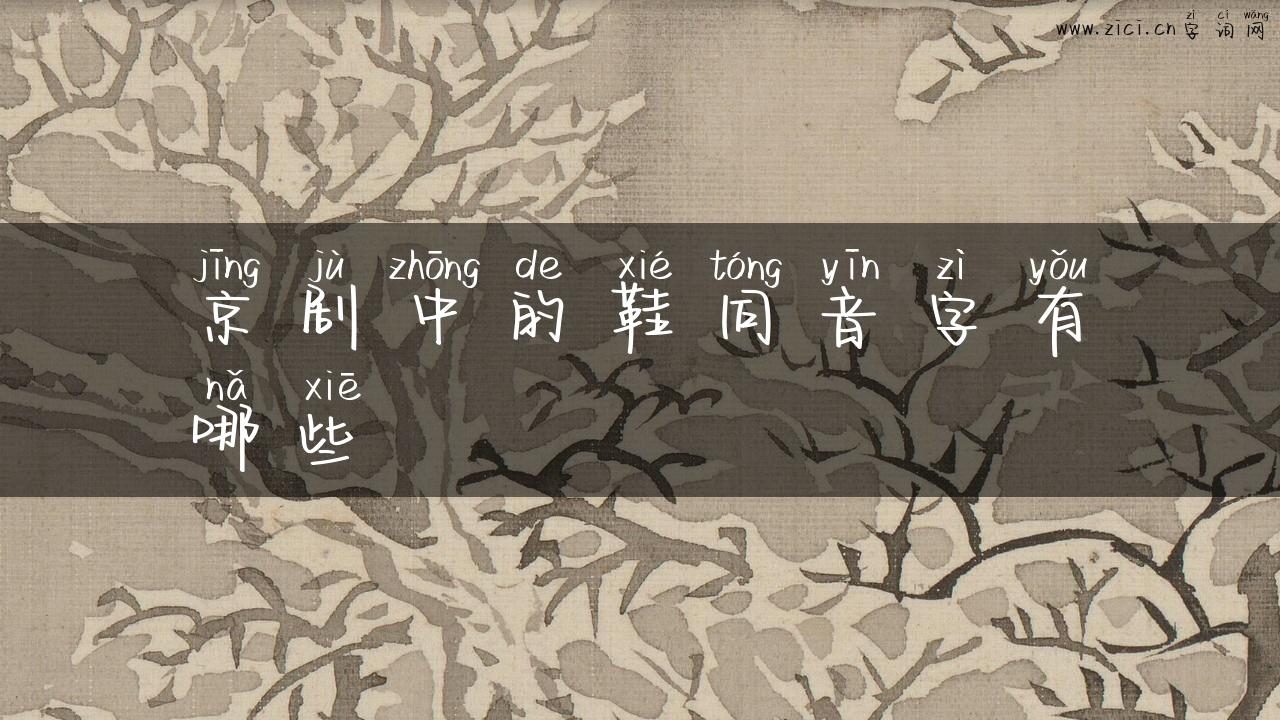 zì cí wǎng
www.zici.cn字词网
jīng jù zhōng de xié tóng yīn zì yǒu
京剧中的鞋同音字有
nǎ xiē
哪些